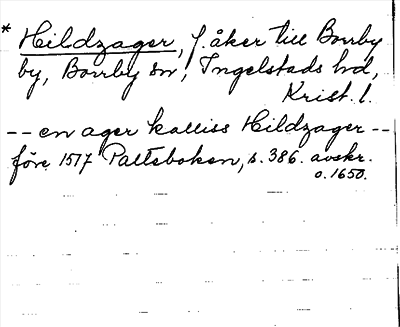 * Hildzager, f. åker till Borrby
by, Borrby sn, Ingelstads hd,
Krist. l.
-- en ager kalliss Hildzager --
före 1577 Paltebokon, s. 386. avskr.
o. 1650.